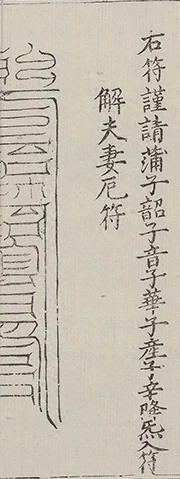 右符謹請蒲子韶子音子華子產子辛降炁入符
解夫妻厄符